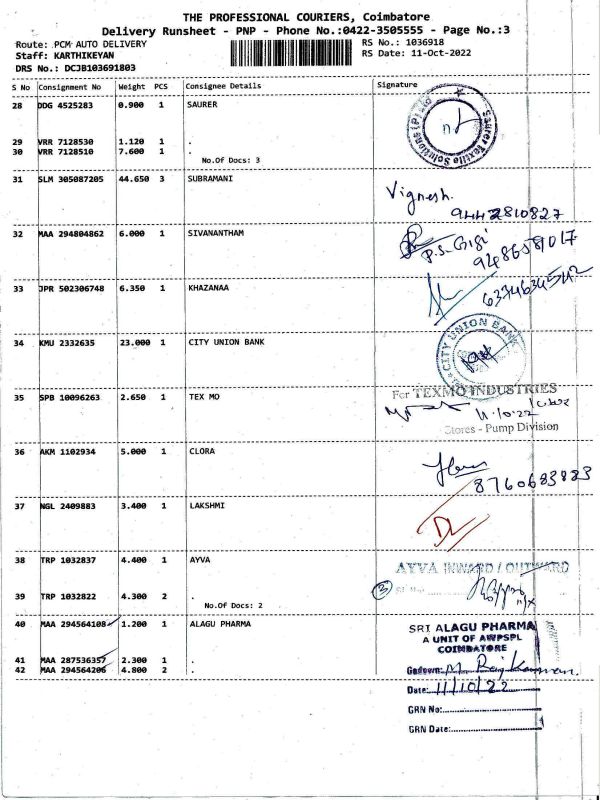 THE PROFESSIONAL COURIERS, Coimbatore
Delivery Runsheet - PNP - Phone No.:0422-3505555 - Page No.:3
Route: PCM AUTO DELIVERY
RS No.: 1036918
Staff: KARTHIKEYAN
RS Date: 11-Oct-2022
DRS No.: DCJB103691803
S No Consignment No Weight PCS Consignee Details Signature
28 DDG 4525283 0.900 1 SAURER
Saurer Textile Solutions (P) Ltd
29 VRR 7128530 1.120 1 .
30 VRR 7128510 7.600 1 .
No.Of Docs: 3
31 SLM 305087205 44.650 3 SUBRAMANI
Vignesh.
9442810827
32 MAA 294804862 6.000 1 SIVANANTHAM
P.S. Gigi
9486581017
33 JPR 502306748 6.350 1 KHAZANAA
6374634542
34 KMU 2332635 23.000 1 CITY UNION BANK
CITY UNION BANK
35 SPB 10096263 2.650 1 TEX MO
For TEXMO INDUSTRIES
11.10.22
Stores - Pump Division
36 AKM 1102934 5.000 1 CLORA
8760683883
37 NGL 2409883 3.400 1 LAKSHMI
38 TRP 1032837 4.400 1 AYVA
AYVA INWARD / OUTWARD
3
39 TRP 1032822 4.300 2 .
No.Of Docs: 2
40 MAA 294564108 1.200 1 ALAGU PHARMA
SRI ALAGU PHARMA
A UNIT OF AWPSPL
COIMBATORE
41 MAA 287536357 2.300 1 .
42 MAA 294564206 4.800 2 .
Godown: M. Rajkumar.
Date: 11/10/22
GRN No:
GRN Date: